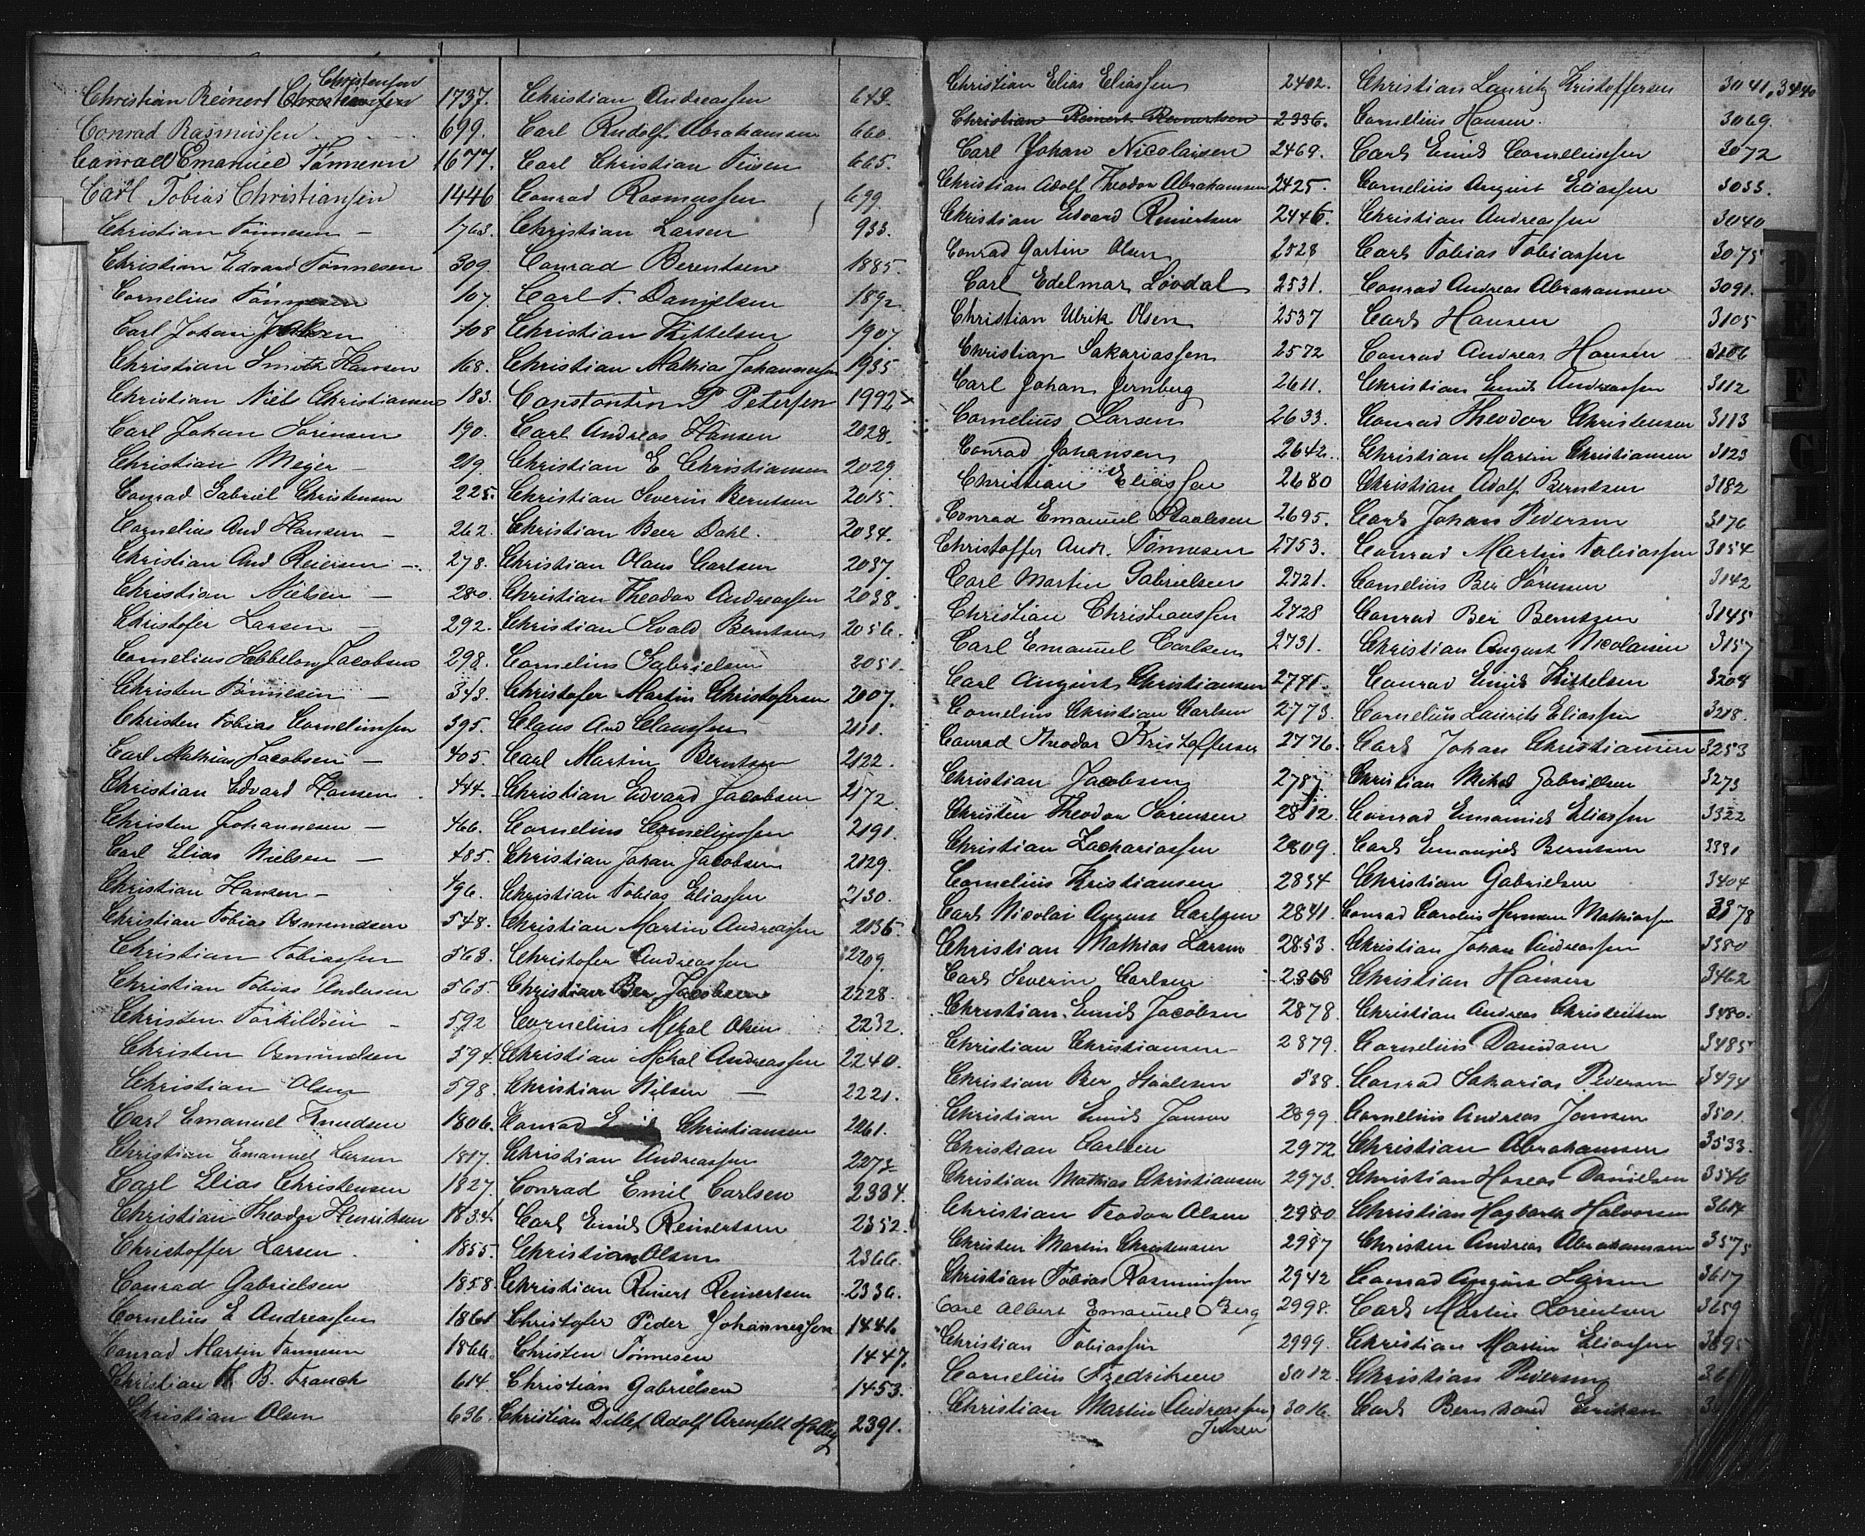 Christensen
Christian Reinert Christensen 1737.
Conrad Rasmussen 699.
Conrad Emanuel Tønnesen 1677.
Carl Tobias Christiansen 1446
Christian Tønnesen – 1763.
Christian Edvard Tønnesen 309.
Cornelius Tønnesen 107.
Carl Johan 108
Christian Smith Hansen 168.
Christian Niels Christiansen 183.
Carl Johan Sørensen 190.
Christian Meyer – 219.
Conrad Gabriel Christensen 225.
Cornelius And Hansen – 262.
Christian And Reiersen – 278.
Christian Nielsen – 280.
Christofer Larsen – 292.
Cornelius Jacobsen 298.
Christen Tønnesen – 343.
Christen Tobias Corneliussen 395.
Carl Mathias Jacobsen – 405.
Christian Edvard Hansen 444.
Christen Johannesen – 466.
Carl Elias Nielsen – 485.
Christian Hansen – 496.
Christian Tobias Asmundsen 548.
Christian Tobiassen 563.
Christian Tobias Andersen 565.
Christen Torkildsen – 592
Christen Asmundsen 594.
Christian Olsen 598.
Carl Emanuel Knudsen 1806.
Christian Emanuel Larsen 1817.
Carl Elias Christensen 1827.
Christian Theodor Henriksen 1834.
Christoffer Larsen 1855.
Conrad Gabrielsen 1858.
Cornelius E Andreassen 1861
Conrad Martin Tønnesen 1866.
Christian H. B. Franck 614.
Christian Olsen 636.
Christian Andreassen 649.
Carl Rudolf Abrahamsen 660.
Carl Christian 665.
Conrad Rasmussen 699.
Christian Larsen 933.
Conrad Berentsen 1885.
Carl T. Danielsen 1892
Christian Kittelsen 1907.
Christian Mathias Johannessen 1935
Constantin P Petersen 1992 x
Carl Andreas Hansen 2028.
Christian E Christiansen 2029.
Christian Severin Berntsen 2015.
Christian Beer Dahl. 2034.
Christian Olaus Carlsen 2037.
Christian Theodor Andreassen 2038.
Christian Svald Berntsen 2056.
Cornelius Gabrielsen 2051.
Christofer Martin Christofersen 2007.
Claus And Claussen 2111.
Carl Martin Berntsen 2122.
Christian Edvard Jacobsen 2172.
Cornelius Corneliussen 2191.
Christian Johan Jacobsen 2129.
Christian Tobias Eliassen 2130.
Christian Martin Andreassen 2136.
Christofer Andreassen 2209.
Christian Ber Jacobsen 2228.
Cornelius Mekal Olsen 2232.
Christian Mekal Andreassen 2240.
Christian Nilsen – 2221.
Conrad Emil Christiansen 2261.
Christian Andreassen 2273
Conrad Emil Carlsen 2384.
Carl Emil Reinertsen 2352.
Christian Olsen 2366.
Christian Reinert Reinertsen 2336.
Christofer Peder Johannessen 1446
Christen Tønnesen 1447.
Christian Gabrielsen 1453.
Christian Ditlef Adolf Arenfelt 2391.
Christian Elias Eliassen 2402.
Christian Reinert Reinertsen 2336.
Carl Johan Nicolaisen 2469.
Christian Adolf Theodor Abrahamsen 2425.
Christian Edvard Reinertsen 2446.
Conrad Gartin Olsen 2528
Carl Edelmar Løvdal 2531.
Christian Ulrik Olsen 2537
Christian Sakariassen 2572
Carl Johan Jernberg 2611.
Cornelius Larsen 2633.
Conrad Johansen 2642.
Christian Eliassen 2680
Conrad Emanuel Staalesen 2695.
Christoffer Andr. Tønnesen 2753.
Carl Martin Gabrielsen 2721.
Christian Christianssen 2728
Carl Emanuel Carlsen 2731.
Carl August Christiansen 2741.
Cornelius Christian Carlsen 2773.
Conrad Theodor Kristoffersen 2776.
Christian Jacobsen 2787.
Christen Theodor Sørensen 2812.
Christian Zachariassen 2809.
Cornelius Kristiansen 2834
Carl Nicolai August Carlsen 2841.
Christian Mathias Larsen 2853.
Carl Severin Carlsen 2868
Christian Emil Jacobsen 2878.
Christian Christiansen 2879.
Christian Ber Staalesen 538.
Christian Emil Jansen 2899
Christian Carlsen 2972
Christian Mathias Christiansen 2973.
Christian Teodor Olsen 2980
Christen Martin Christensen 2987
Christian Tobias Rasmussen 2942
Carl Albert Emanuel Berg 2998.
Christian Tobiassen 2999.
Cornelius Fredriksen 3012.
Christian Martin Andreassen 3016.
Jensen
Christian Lauritz Kristoffersen 3041, 3440
Cornelius Hansen. 3069.
Carl Emil Corneliussen 3072
Cornelius August Eliassen 3033.
Christian Andreassen 3040
Carl Tobias Tobiassen 3075
Conrad Andreas Abrahamsen 3091.
Carl Hansen 3105
Conrad Andreas Hansen 3106
Christian Emil Andreassen 3112
Conrad Theodor Christensen 3113
Christian Martin Christiansen 3123
Christian Adolf Berntsen 3182
Carl Johan Pedersen 3176
Conrad Martin Tobiassen 3154
Cornelius Ber Sørensen 3142
Conrad Ber Berntzen 3145
Christian August Nicolaisen 3157
Conrad Emil Kittelsen 3204
Cornelius Laurits Eliassen 3218.
Carl Johan Christiansen 3253
Christian Mekal Gabrielsen 3273
Conrad Emanuel Eliassen 3322
Carl Emanuel Berntsen 3331
Christian Gabrielsen 3404
Conrad Carolius Herman Mathiassen 3378
Christian Johan Andreassen 3380
Christian Hansen 3462
Christian Andreas Christensen 3480.
Cornelius Danielsen 3485
Conrad Sakarias Pedersen 3494
Cornelius Andreas Jansen 3501.
Christian Abrahamsen 3533.
Christian Hoseas Danielsen 3546
Christian Hagbarth Halvorsen 3614
Christen Andreas Abrahamsen 3575
Conrad August Larsen 3617
Carl Martin Lorentsen 3659
Christian Martin Eliassen 3695
Christian Pedersen
Carl Bernhard Eriksen
D
E
F
G